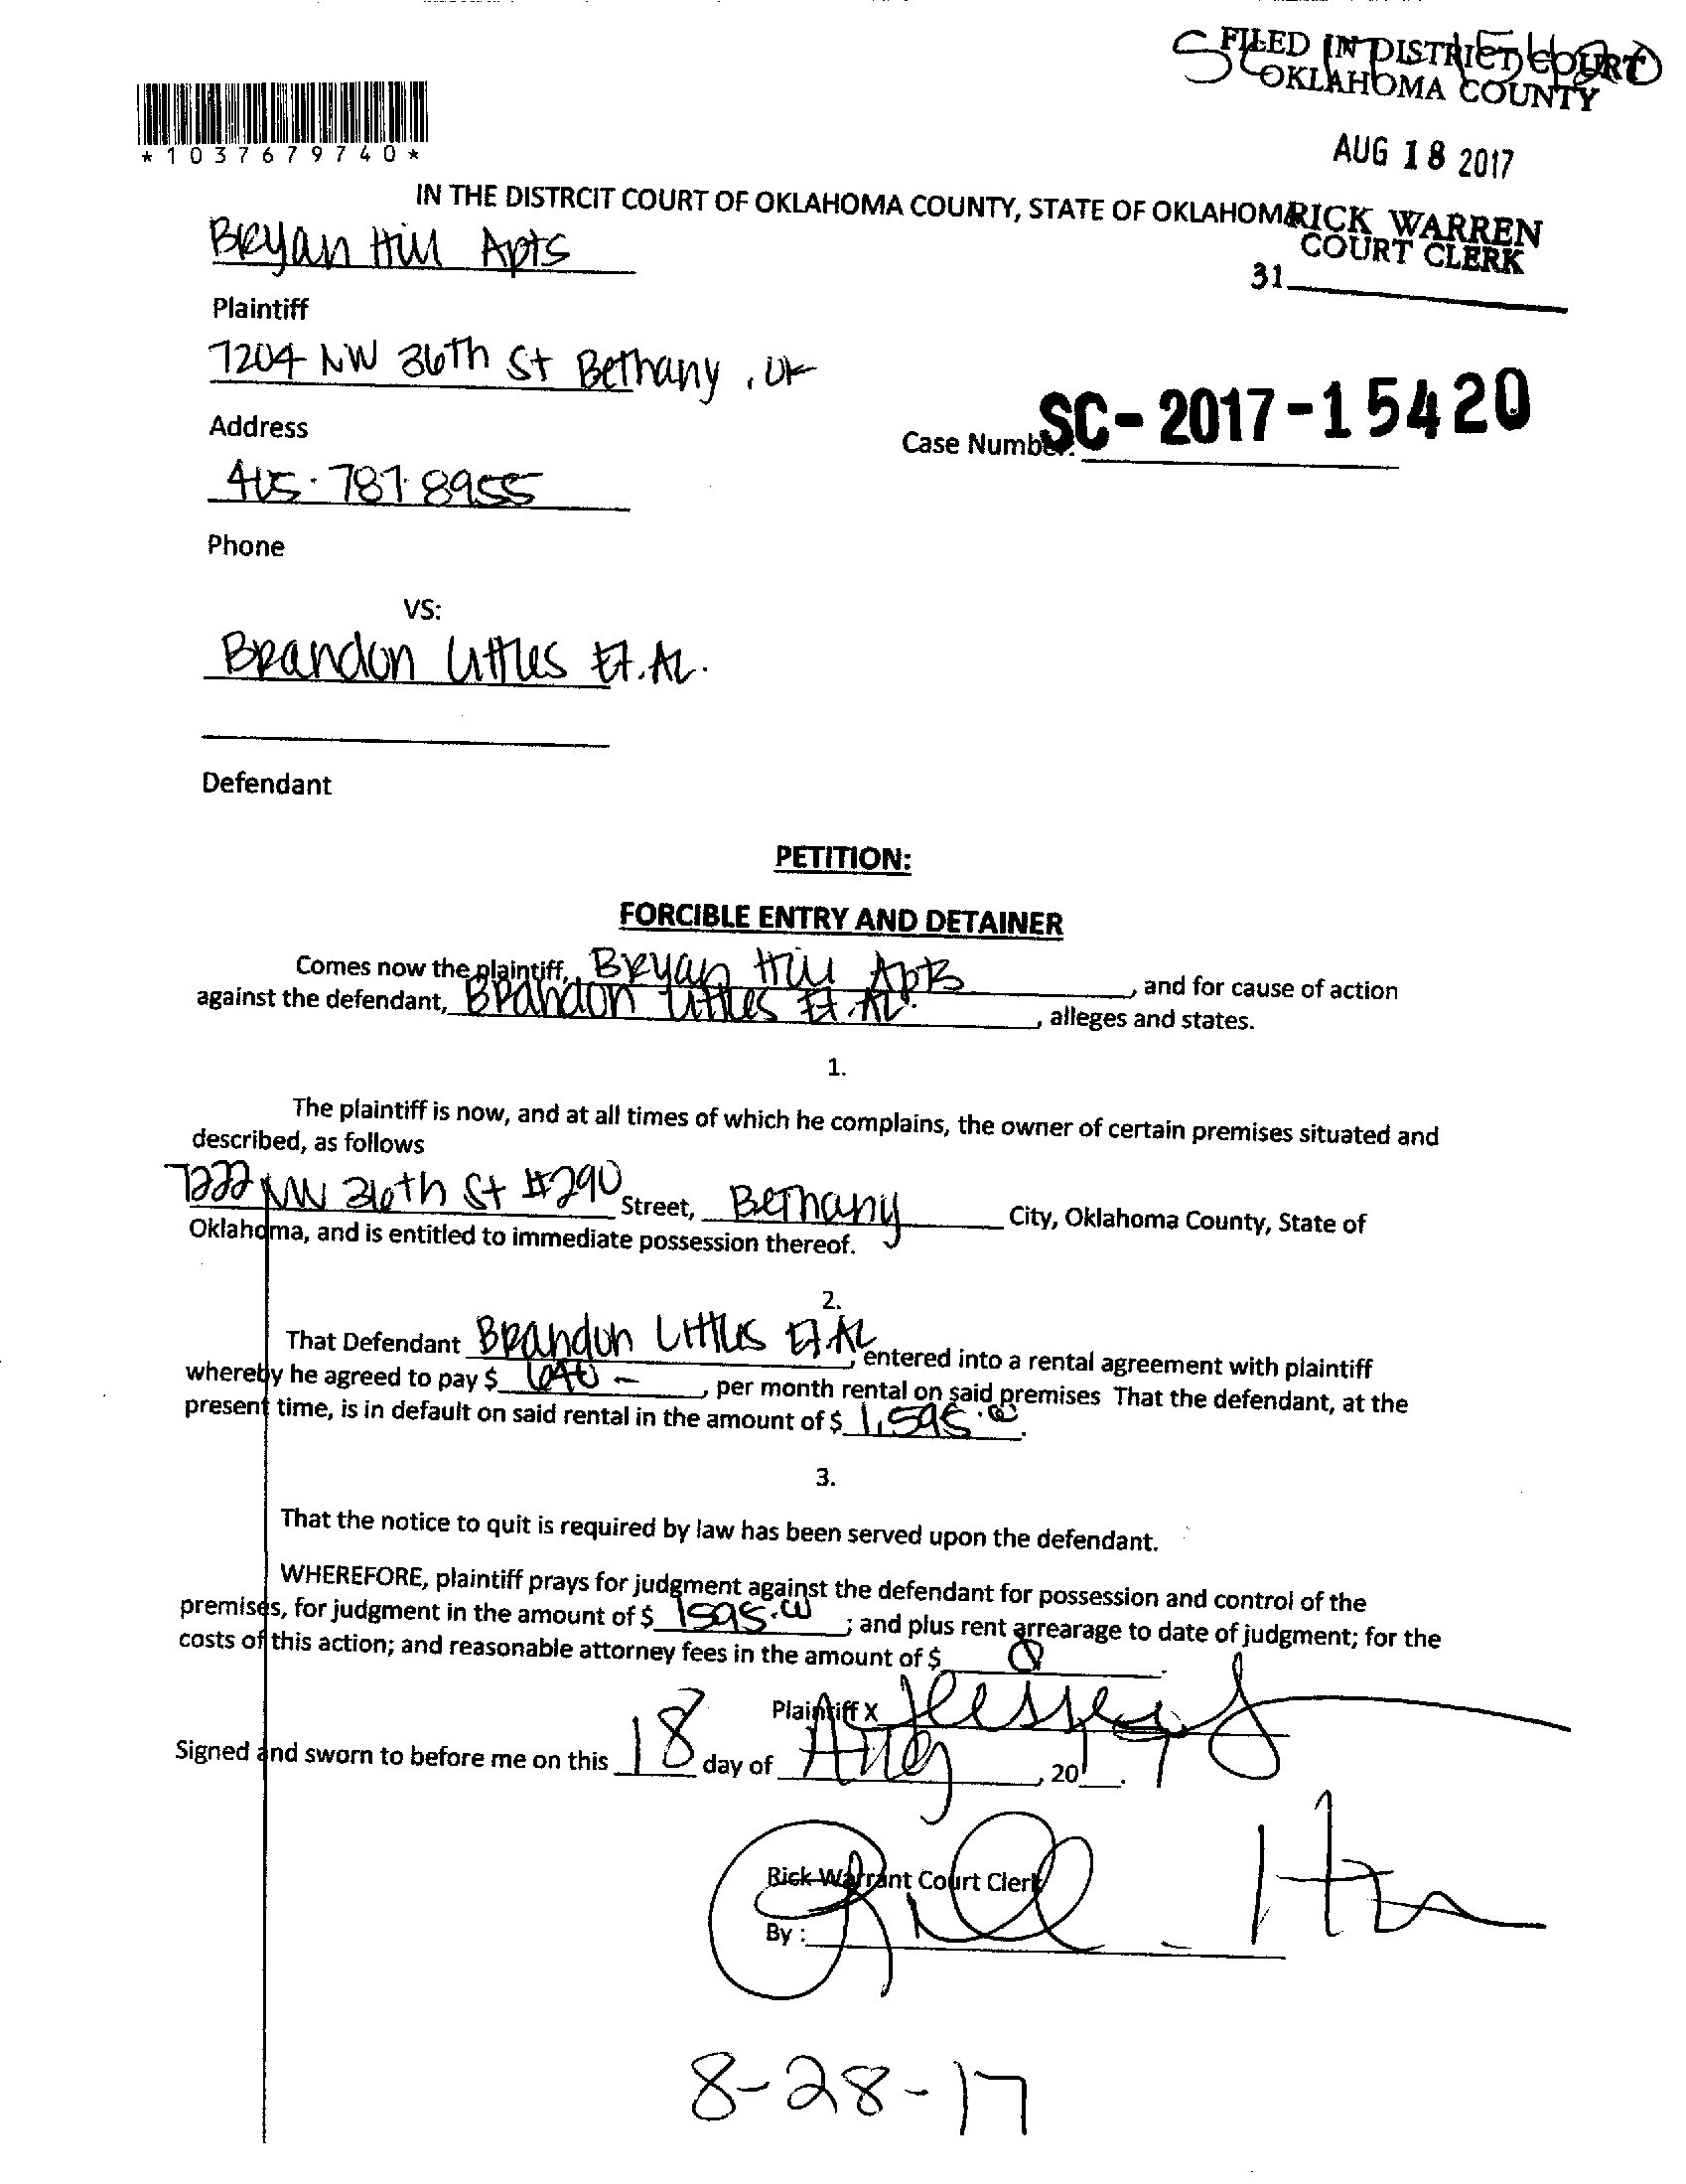 FILED IN DISTRICT COURT
OKLAHOMA COUNTY
*1037679740*
AUG 18 2017
IN THE DISTRCIT COURT OF OKLAHOMA COUNTY, STATE OF OKLAHOMA
RICK WARREN
COURT CLERK
31
Bryan Hill Apts
Plaintiff
7204 NW 36th St Bethany, OK
Address
SC-2017-15420
Case Number:
405.787.8955
Phone
VS:
Brandon Littles Et.Al.
Defendant
PETITION:
FORCIBLE ENTRY AND DETAINER
Comes now the plaintiff, Bryan Hill Apts, and for cause of action
against the defendant, Brandon Littles Et.Al., alleges and states.
1.
The plaintiff is now, and at all times of which he complains, the owner of certain premises situated and
described, as follows
7222 NW 36th St #290 Street, Bethany City, Oklahoma County, State of
Oklahoma, and is entitled to immediate possession thereof.
2.
That Defendant Brandon Littles Et.Al, entered into a rental agreement with plaintiff
whereby he agreed to pay $ 640 -, per month rental on said premises That the defendant, at the
present time, is in default on said rental in the amount of $ 1,595.00.
3.
That the notice to quit is required by law has been served upon the defendant.
WHEREFORE, plaintiff prays for judgment against the defendant for possession and control of the
premises, for judgment in the amount of $ 1595.00; and plus rent arrearage to date of judgment; for the
costs of this action; and reasonable attorney fees in the amount of $
Plaintiff X
Signed and sworn to before me on this 18 day of Aug, 2017.
Rick Warrant Court Clerk
By :
8-28-17